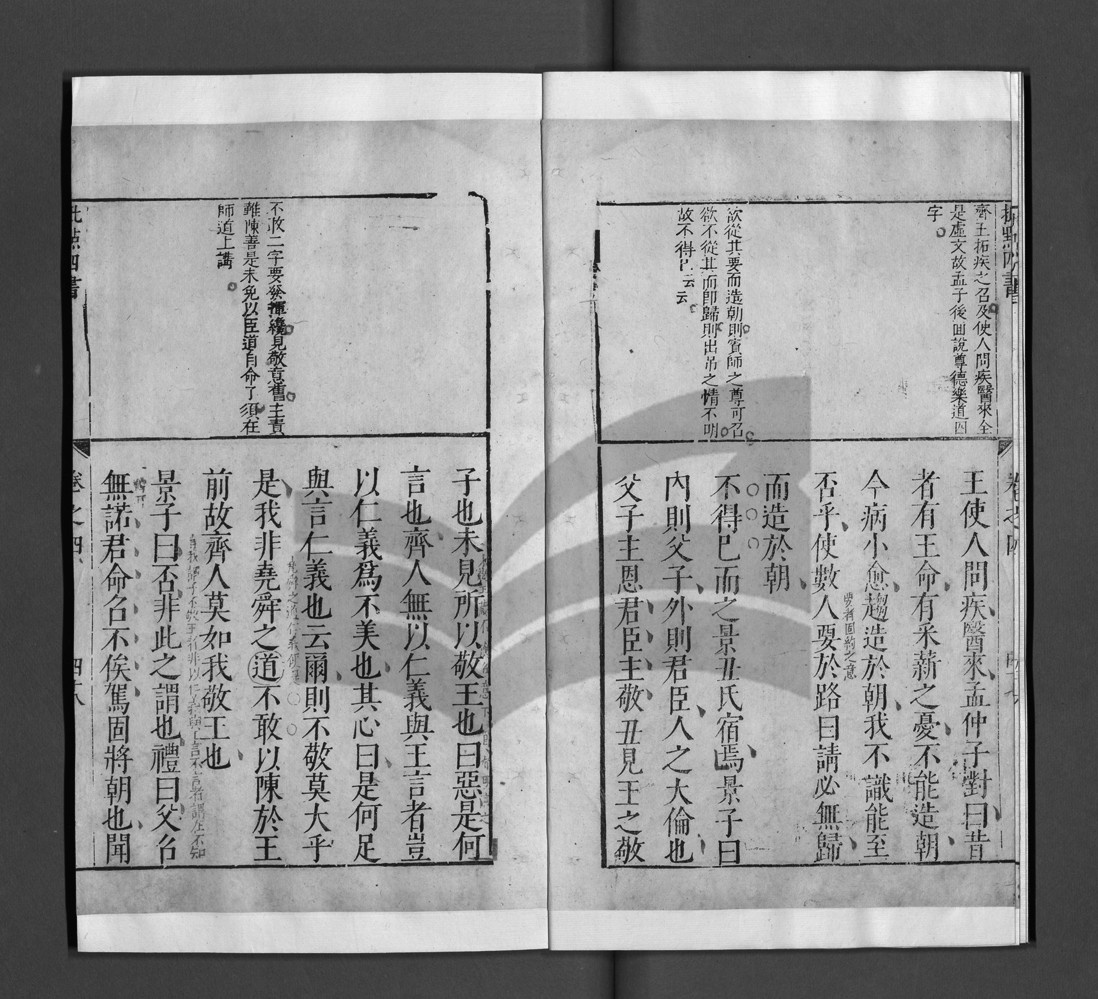 齊王拓疾之召及使人問疾醫來全
是虛文故孟子後面說尊德樂道四
字
欲從其要而造朝則賓師之尊可召
欲不從其而即歸則出吊之情不明
故不得已云云
王使人問疾醫來孟仲子對曰昔
者有王命有釆薪之憂不能造朝
今病小愈趨造於朝我不識能至
否乎使數人要於路曰請必無歸
而造於朝
不得已而之景丑氏宿焉景子曰
內則父子外則君臣人之大倫也
父子主恩君臣主敬丑見王之敬
不敢二字要發揮纔見敬意舊主責
難陳善是未免以臣道自命了須在
師道上講
子也未見所以敬王也曰惡是何
言也齊人無以仁義與王言者豈
以仁義爲不美也其心曰是何足
與言仁義也云爾則不敬莫大乎
是我非堯舜之道不敢以陳於王
前故齊人莫如我敬王也
景子曰否非此之謂也禮曰父召
無諾君命召不俟駕固將朝也聞
卷之四
四十八